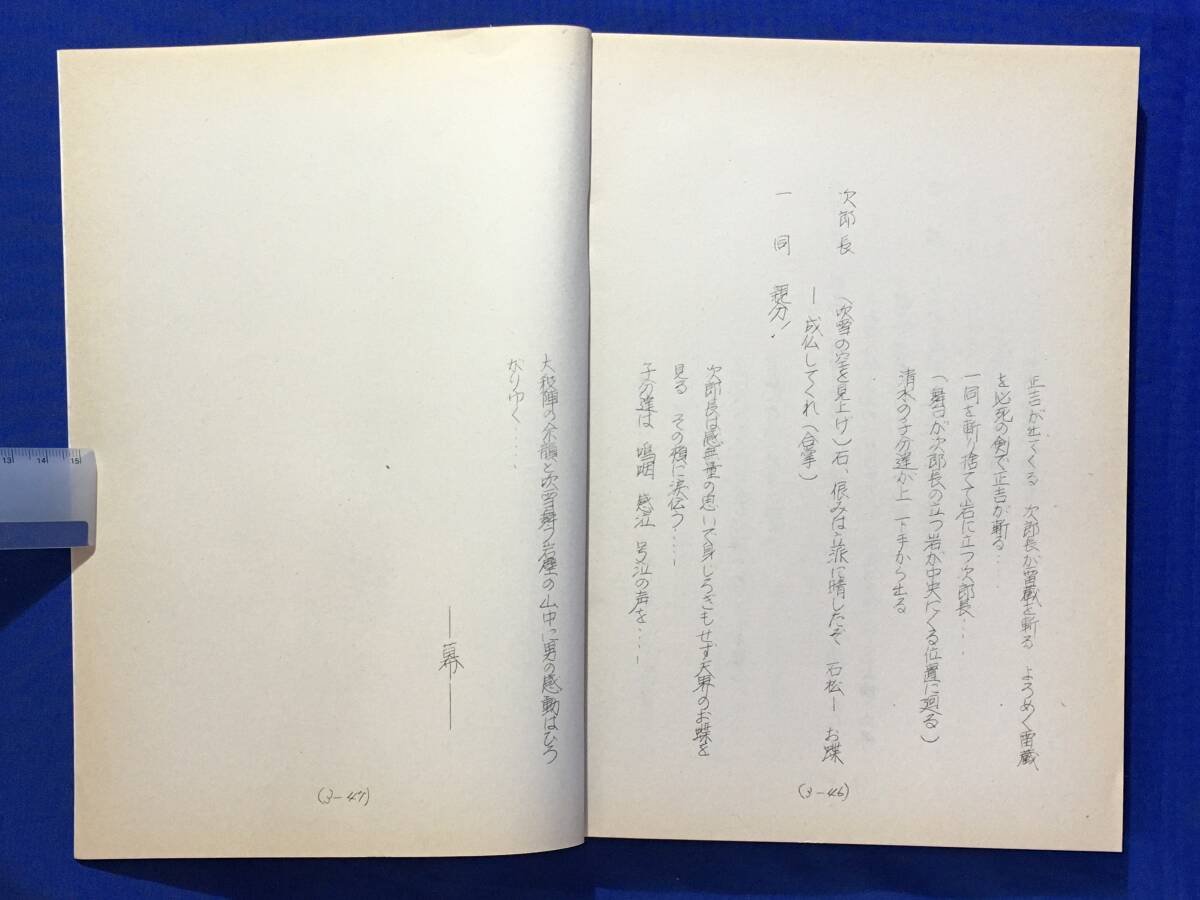 正吉が出てくる　次郎長が雷蔵を斬る　よろめく雷蔵
を必死の剣で正吉が斬る‥‥
一同を斬り捨てて岩に立つ次郎長‥‥
（舞台が次郎長の立つ岩が中央にくる位置に廻る）
清水の子分達が上　下手から出る
次郎長　（吹雪の空を見上げ）石、恨みは立派に晴したぞ　石松ー　お蝶
ー成仏してくれ（合掌）
一同　親分！
次郎長は感無量の思いで身じろぎもせず天界のお蝶を
見る　その頬に涙伝う‥‥‥
子分達は　嗚咽　感泣　号泣の声を‥‥
(3-46)
大殺陣の余韻と吹雪舞う岩壁の山中に男の感動はひろ
がりゆく‥‥‥
―幕―
(3-47)
13 14 15